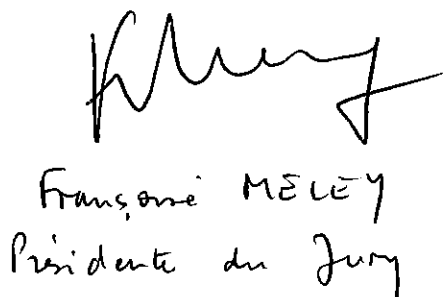 Françoise MELEY
Présidente du Jury